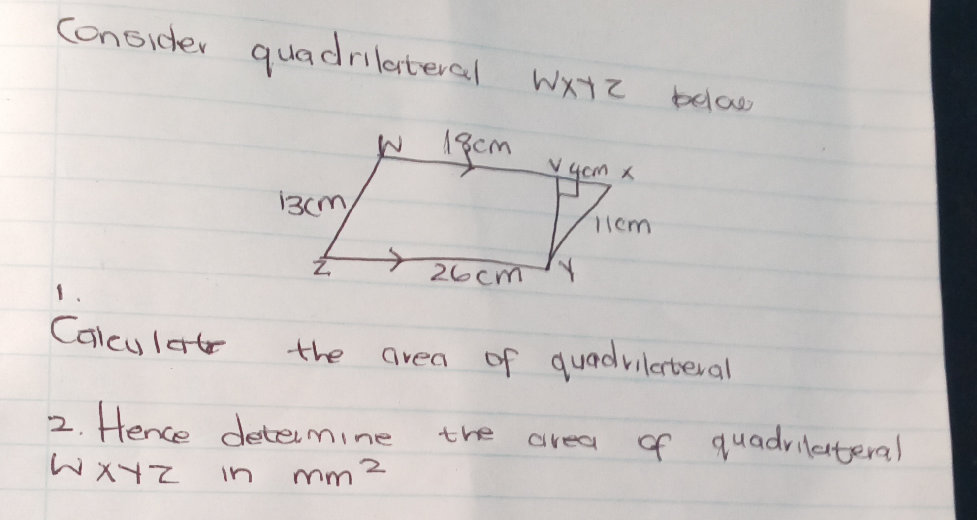 Consider quadrilateral WXYZ below
W 18cm V 4cm X
13cm
11cm
Z 26cm Y
1.
Calculate the area of quadrilateral
2. Hence determine the area of quadrilateral
WXYZ in mm²